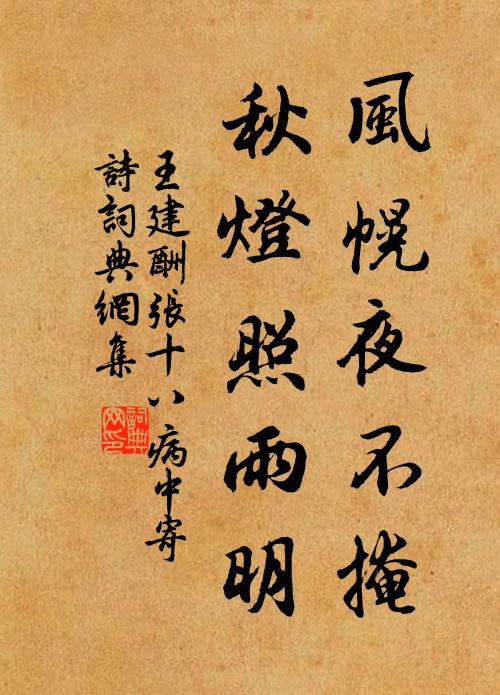 風幌夜不掩
秋燈照雨明
王建酬張十八病中寄
詩詞典網集
詞典
网印